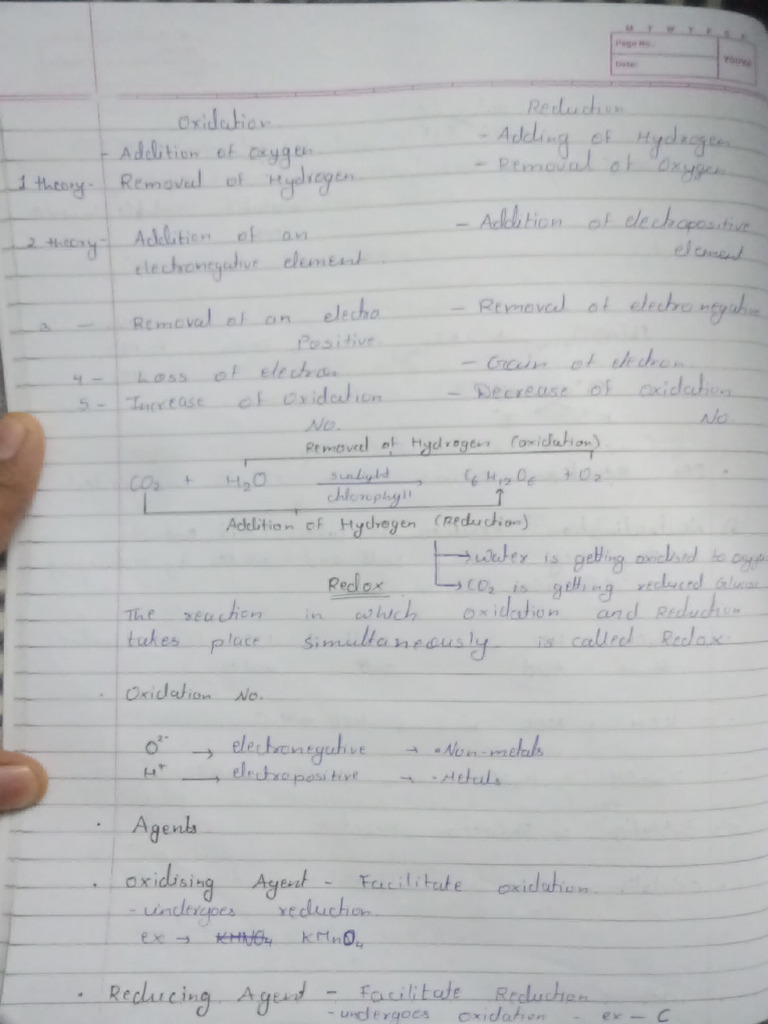 M T W T F S S
Page No.:
Date:
YOUVA
Oxidation
Reduction
- Addition of oxygen
- Adding of Hydrogen
1 theory- Removal of Hydrogen
- Removal of Oxygen
2 theory- Addition of an
electronegative element
- Addition of electropositive
element
3 - Removal of an electro
Positive
- Removal of electronegative
4 - Loss of electron
- Gain of electron
5 - Increase of Oxidation
No.
- Decrease of oxidation
No
Removal of Hydrogen (oxidation)
CO₂ + H₂O sunlight chlorophyll → C₆H₁₂O₆ + O₂
Addition of Hydrogen (Reduction)
→ water is getting oxidised to
→ CO₂ is getting reduced Glucose
Redox
The reaction in which oxidation and Reduction
takes place simultaneously is called Redox.
. Oxidation No.
O²⁻ → electronegative → • Non-metals
H⁺ → electropositive → • Metals
• Agents
. Oxidising Agent - Facilitate oxidation.
- undergoes reduction.
ex → KMnO₄
. Reducing Agent - Facilitate Reduction
- undergoes oxidation - ex - C